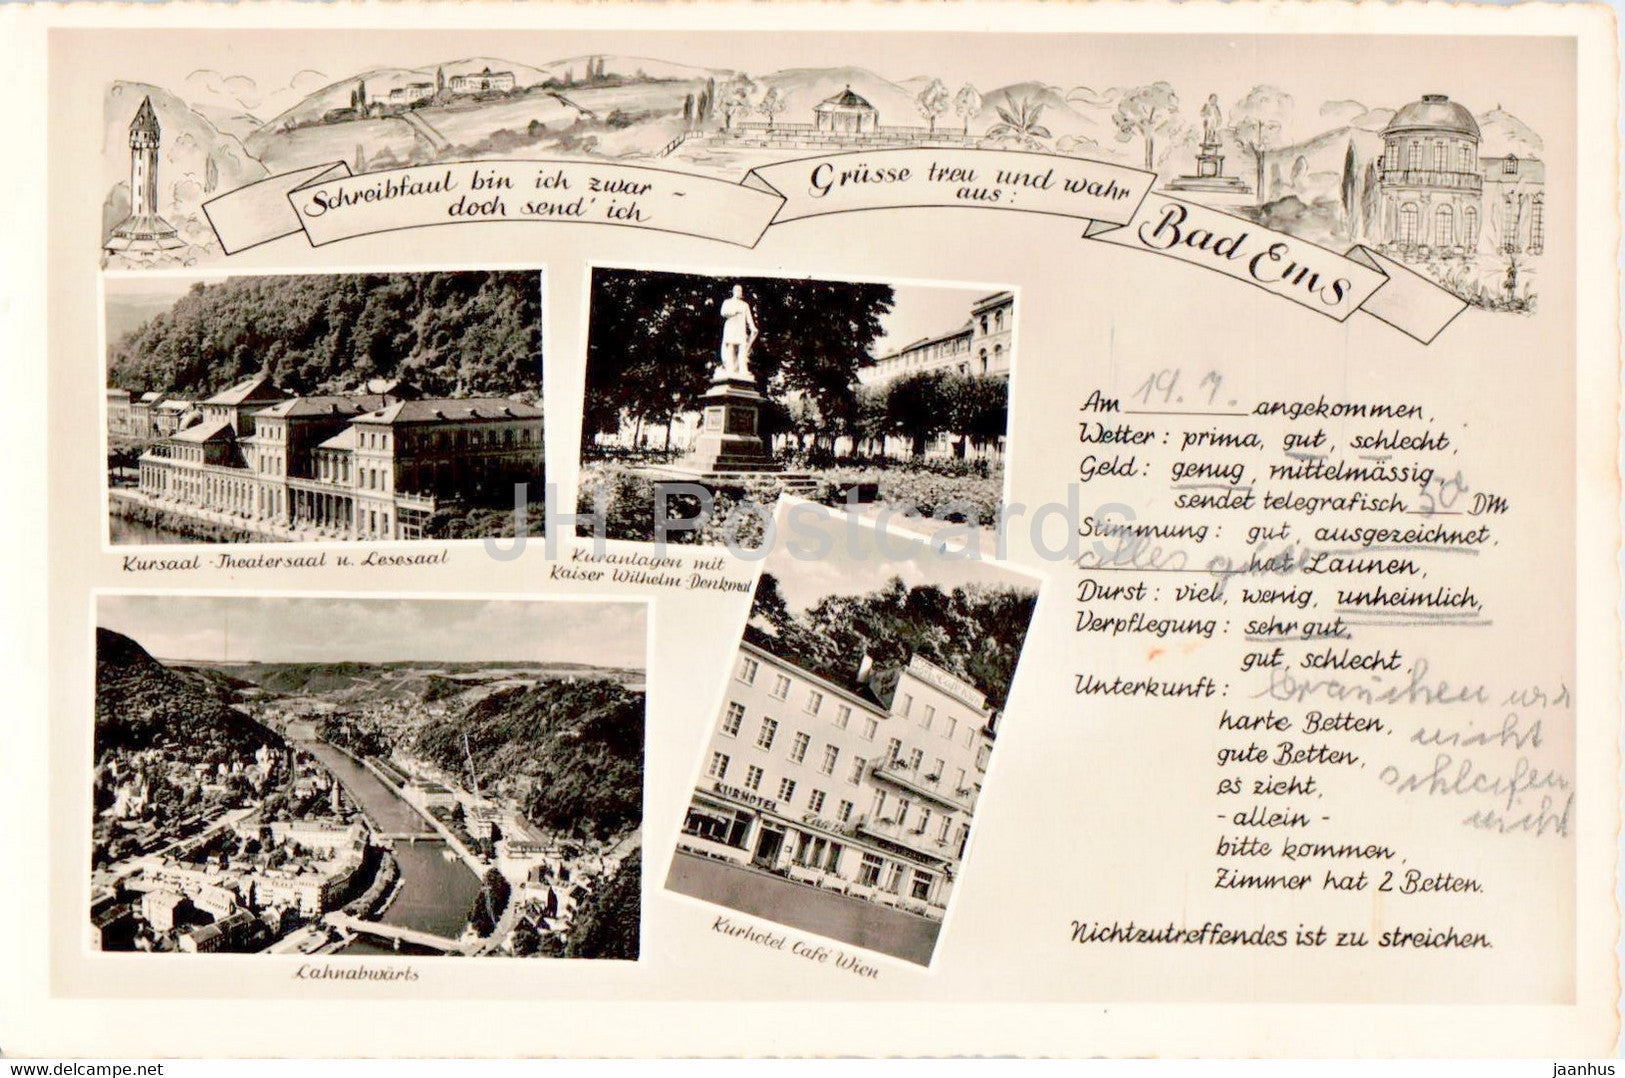 Schreibfaul bin ich zwar -
doch send' ich
Grüsse treu und wahr
aus:
Bad Ems
Kursaal - Theatersaal u. Lesesaal
Kuranlagen mit
Kaiser Wilhelm-Denkmal
Lahnabwärts
KURHOTEL
Kurhotel Café Wien
Am 19. 7. angekommen,
Wetter: prima, gut, schlecht,
Geld: genug, mittelmässig,
sendet telegrafisch 50 DM
Stimmung: gut, ausgezeichnet,
alles hat Launen,
Durst: viel, wenig, unheimlich,
Verpflegung: sehr gut,
gut, schlecht,
Unterkunft: brauchen wir
harte Betten, nicht
gute Betten,
es zieht, schlafen
- allein - nicht
bitte kommen,
Zimmer hat 2 Betten.
Nichtzutreffendes ist zu streichen.
JH Postcards
www.delcampe.net
jaanhus